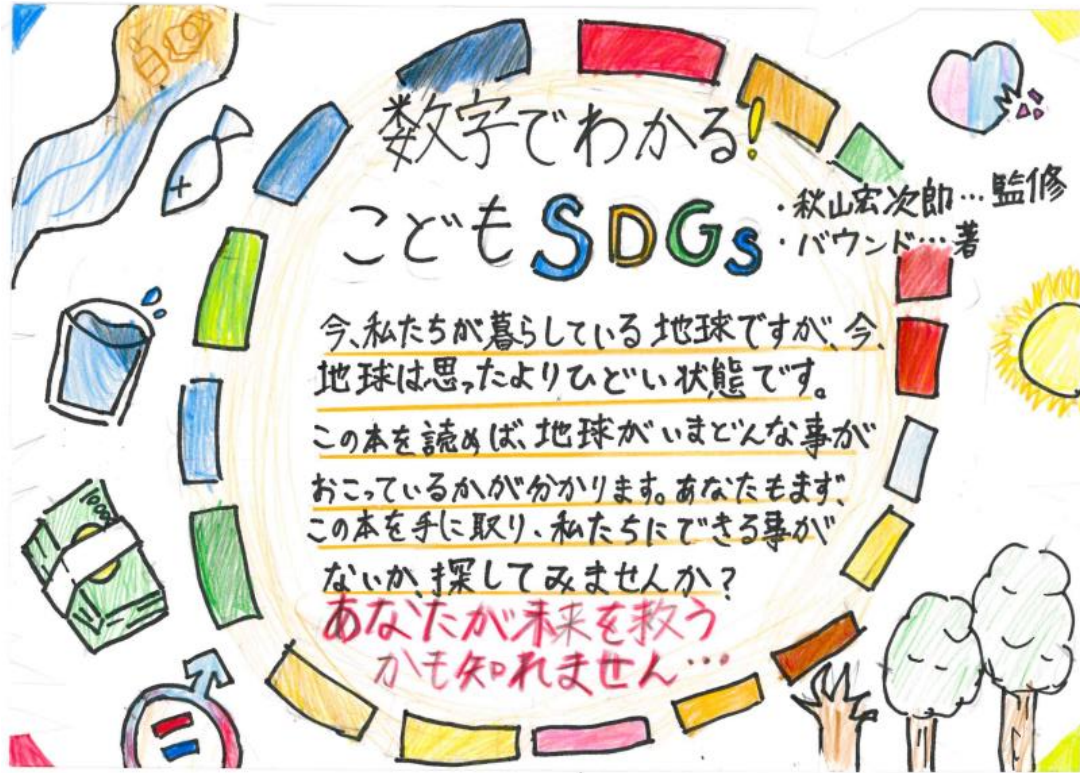 数字でわかる!
こどもSDGs
・秋山宏次郎…監修
・バウンド…著
今、私たちが暮らしている地球ですが、今、
地球は思ったよりひどい状態です。
この本を読めば、地球がいまどんな事が
おこっているかが分かります。あなたもまず、
この本を手に取り、私たちにできる事が
ないか、探してみませんか?
あなたが未来を救う
かも知れません…